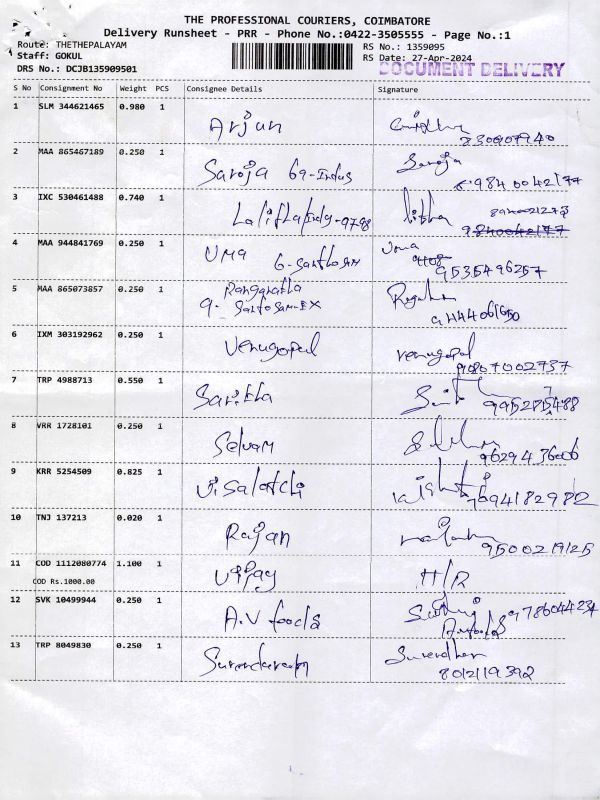 THE PROFESSIONAL COURIERS, COIMBATORE
Delivery Runsheet - PRR - Phone No.:0422-3505555 - Page No.:1
Route: THETHEPALAYAM
Staff: GOKUL
DRS No.: DCJB135909501
RS No.: 1359095
RS Date: 27-Apr-2024
DOCUMENT DELIVERY
S No Consignment No Weight PCS Consignee Details Signature
1 SLM 344621465 0.980 1 Arjun
2 MAA 865467189 0.250 1 Saroja 69-Indus Saroja
9840042177
3 IXC 530461488 0.740 1
9840042177
4 MAA 944841769 0.250 1 UMA Uma
9535496257
5 MAA 865073857 0.250 1
6 IXM 303192962 0.250 1 Venugopal venugopal
7 TRP 4988713 0.550 1
8 VRR 1728101 0.250 1 Selvam
9629436006
9 KRR 5254509 0.825 1
7694182982
10 TNJ 137213 0.020 1 Rajan
9500219125
11 COD 1112080774 1.100 1 Vijay H/R
COD Rs.1000.00
12 SVK 10499944 0.250 1 A.V foods
9786044234
13 TRP 8049830 0.250 1 Surendher
8012119392